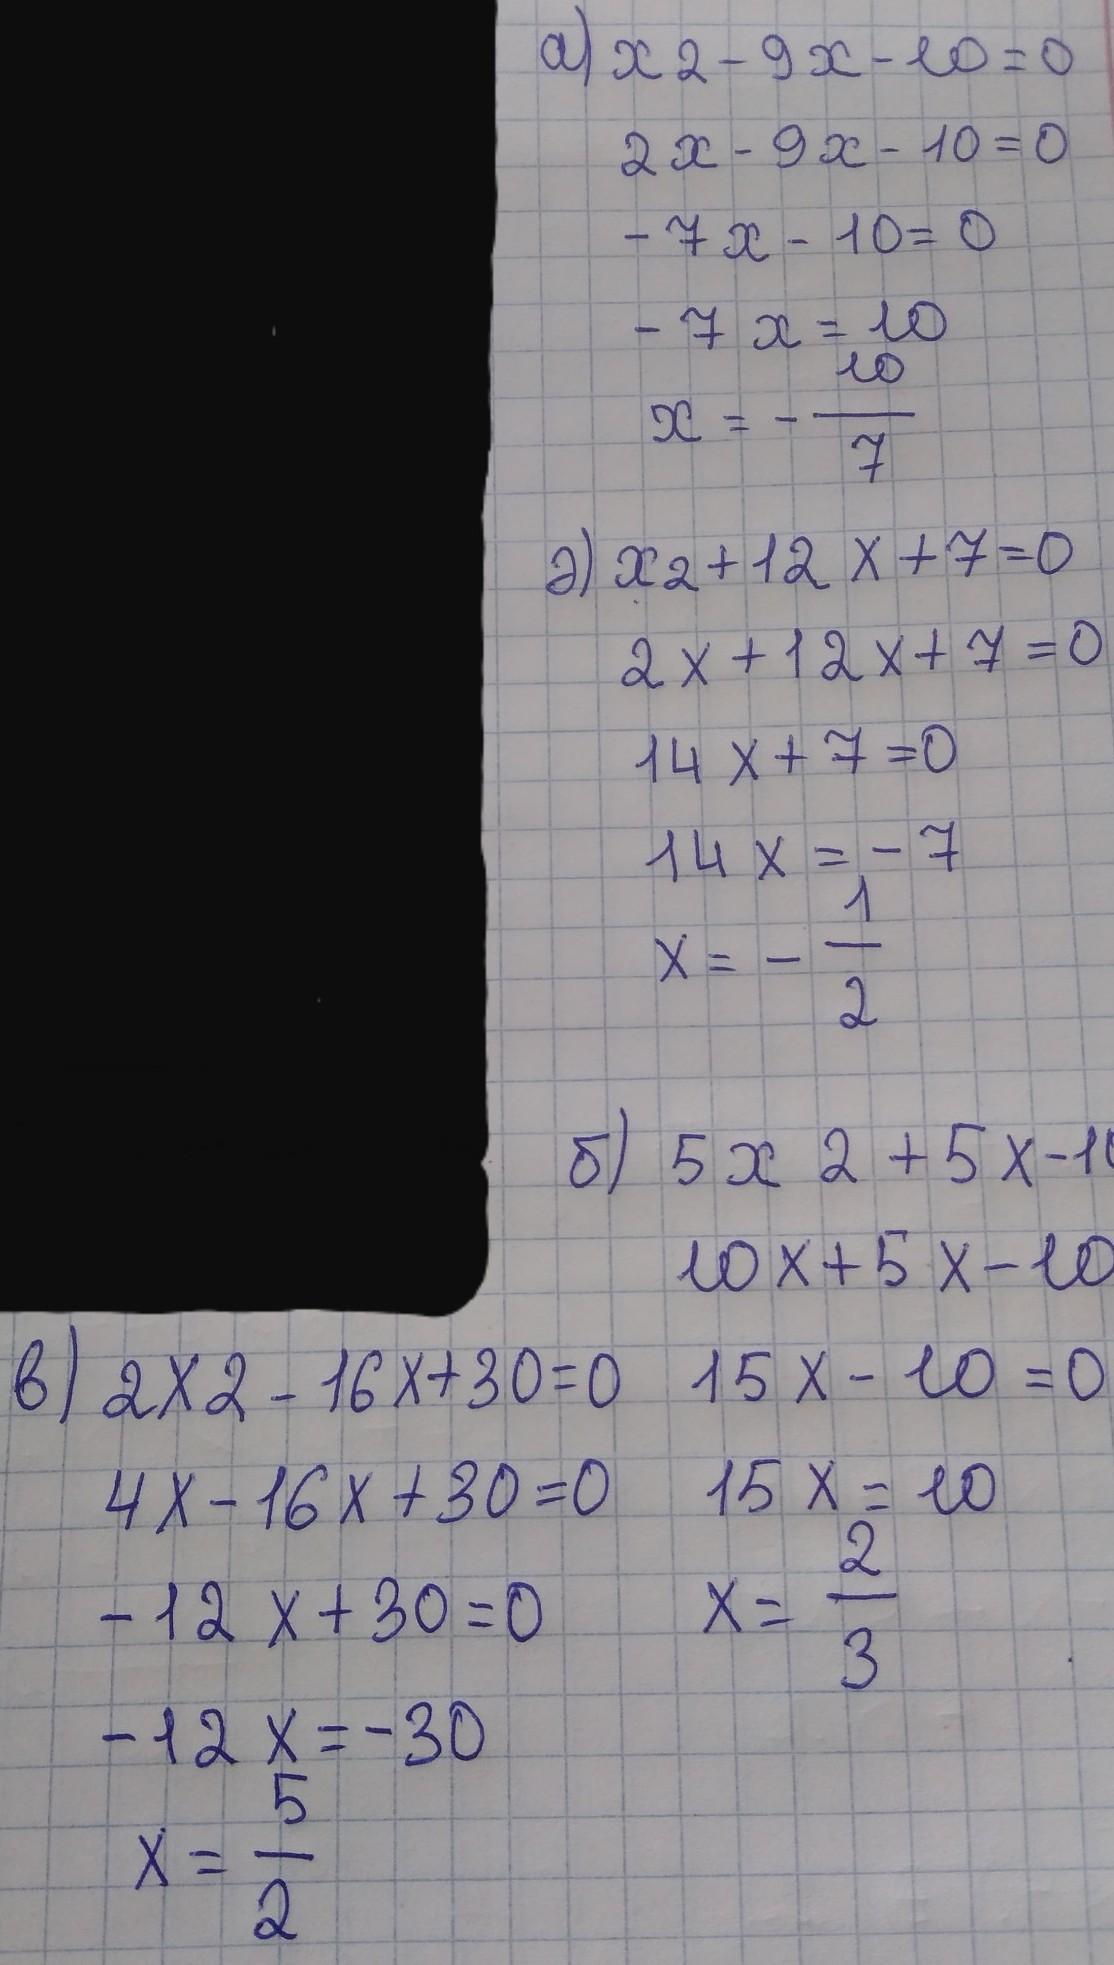 а) x2-9x-10=0
2x-9x-10=0
-7x-10=0
-7x=10
x=-10/7
г) x2+12x+7=0
2x+12x+7=0
14x+7=0
14x=-7
x=-1/2
б) 5x2+5x-10
10x+5x-10
15x-10=0
15x=10
x=2/3
в) 2x2-16x+30=0
4x-16x+30=0
-12x+30=0
-12x=-30
x=5/2